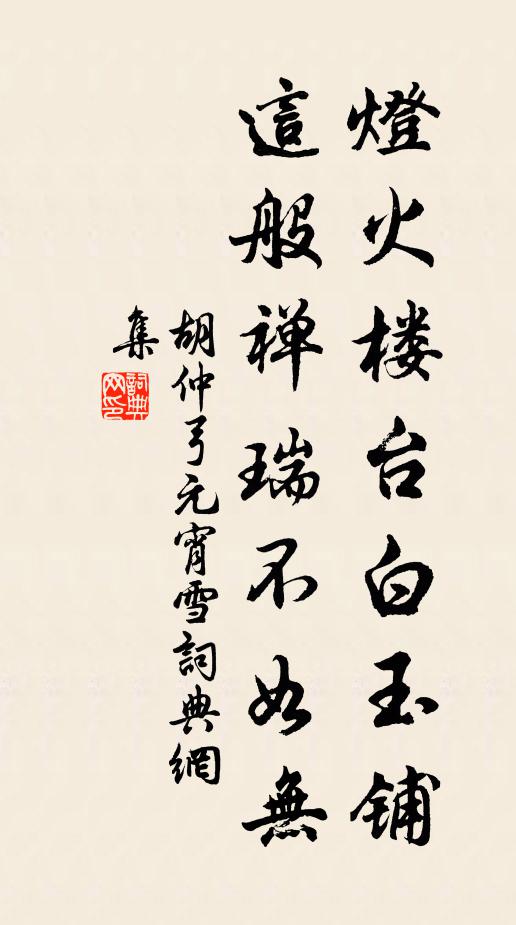 燈火楼台白玉铺
這般禅瑞不如無
胡仲弓元宵雪詞典網
集
詞典
网印